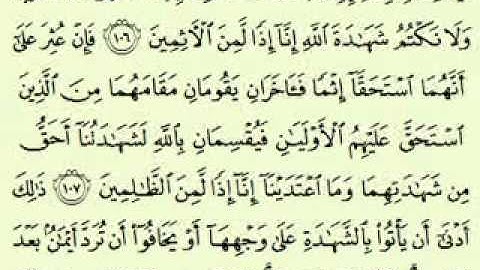 وَلَا نَكْتُمُ شَهَٰدَةَ ٱللَّهِ إِنَّآ إِذًا لَّمِنَ ٱلْءَاثِمِينَ ١٠٦ فَإِنْ عُثِرَ عَلَىٰٓ
أَنَّهُمَا ٱسْتَحَقَّآ إِثْمًا فَـَٔاخَرَانِ يَقُومَانِ مَقَامَهُمَا مِنَ ٱلَّذِينَ
ٱسْتَحَقَّ عَلَيْهِمُ ٱلْأَوْلَيَٰنِ فَيُقْسِمَانِ بِٱللَّهِ لَشَهَٰدَتُنَآ أَحَقُّ
مِن شَهَٰدَتِهِمَا وَمَا ٱعْتَدَيْنَآ إِنَّآ إِذًا لَّمِنَ ٱلظَّٰلِمِينَ ١٠٧ ذَٰلِكَ
أَدْنَىٰٓ أَن يَأْتُوا۟ بِٱلشَّهَٰدَةِ عَلَىٰ وَجْهِهَآ أَوْ يَخَافُوٓا۟ أَن تُرَدَّ أَيْمَٰنٌۢ بَعْدَ